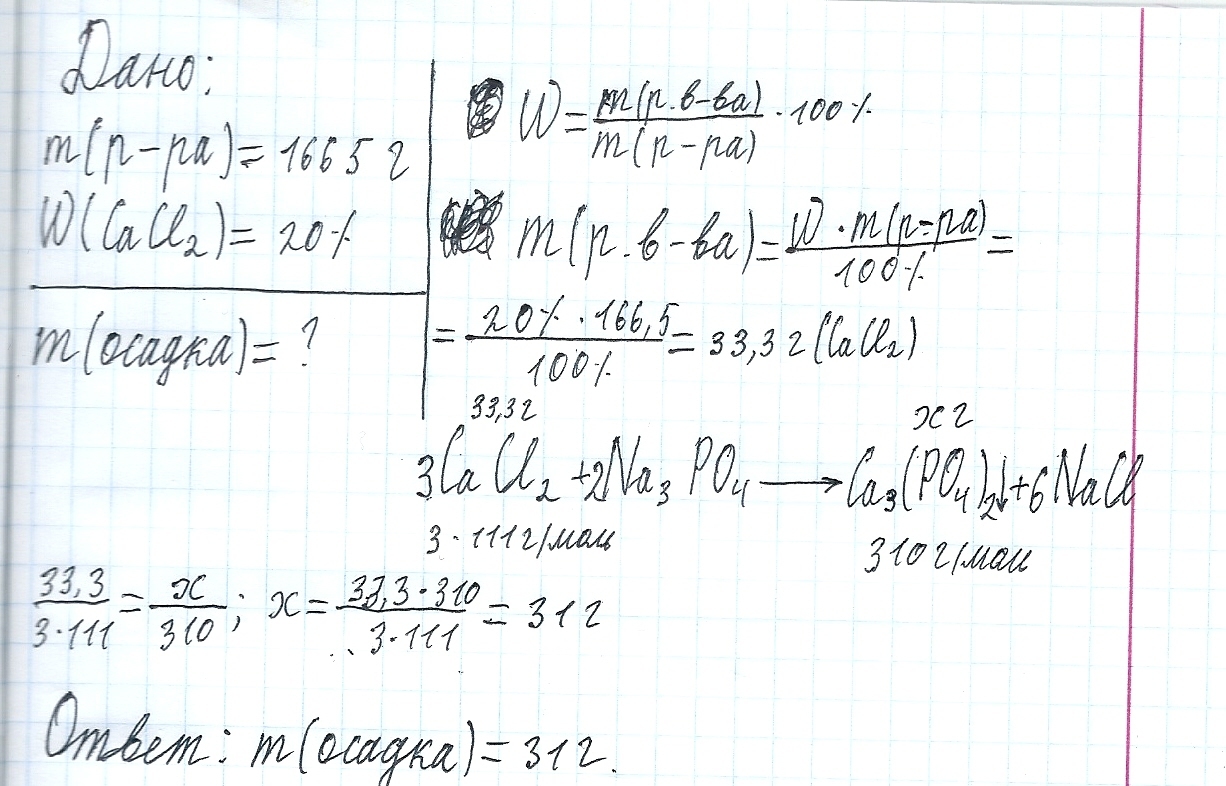 Дано:
m(р-ра)= 166 5 г
W(CaCl₂)= 20%
m(осадка)= ?
W = m(р.в-ва)/m(р-ра) · 100%
m(р.в-ва) = W · m(р-ра)/100% =
= 20% · 166,5/100% = 33,3 г (CaCl₂)
33,3г
x г
3CaCl₂ + 2Na₃PO₄ ⟶ Ca₃(PO₄)₂↓ + 6NaCl
3 · 111г/моль
310г/моль
33,3/3·111 = x/310 ; x = 33,3·310/3·111 = 31г
Ответ: m(осадка) = 31г.